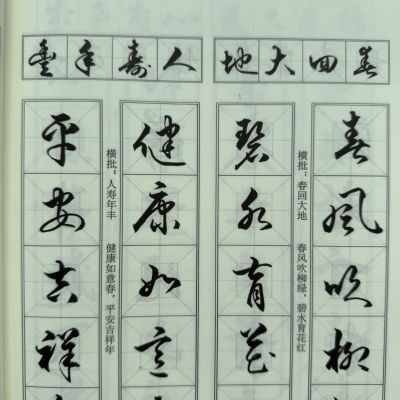 春回大地
春风吹柳
横批：春回大地 春风吹柳绿，碧水育花红
碧水育花
人寿年豊
健康如意
横批：人寿年丰 健康如意春，平安吉祥年
平安吉祥